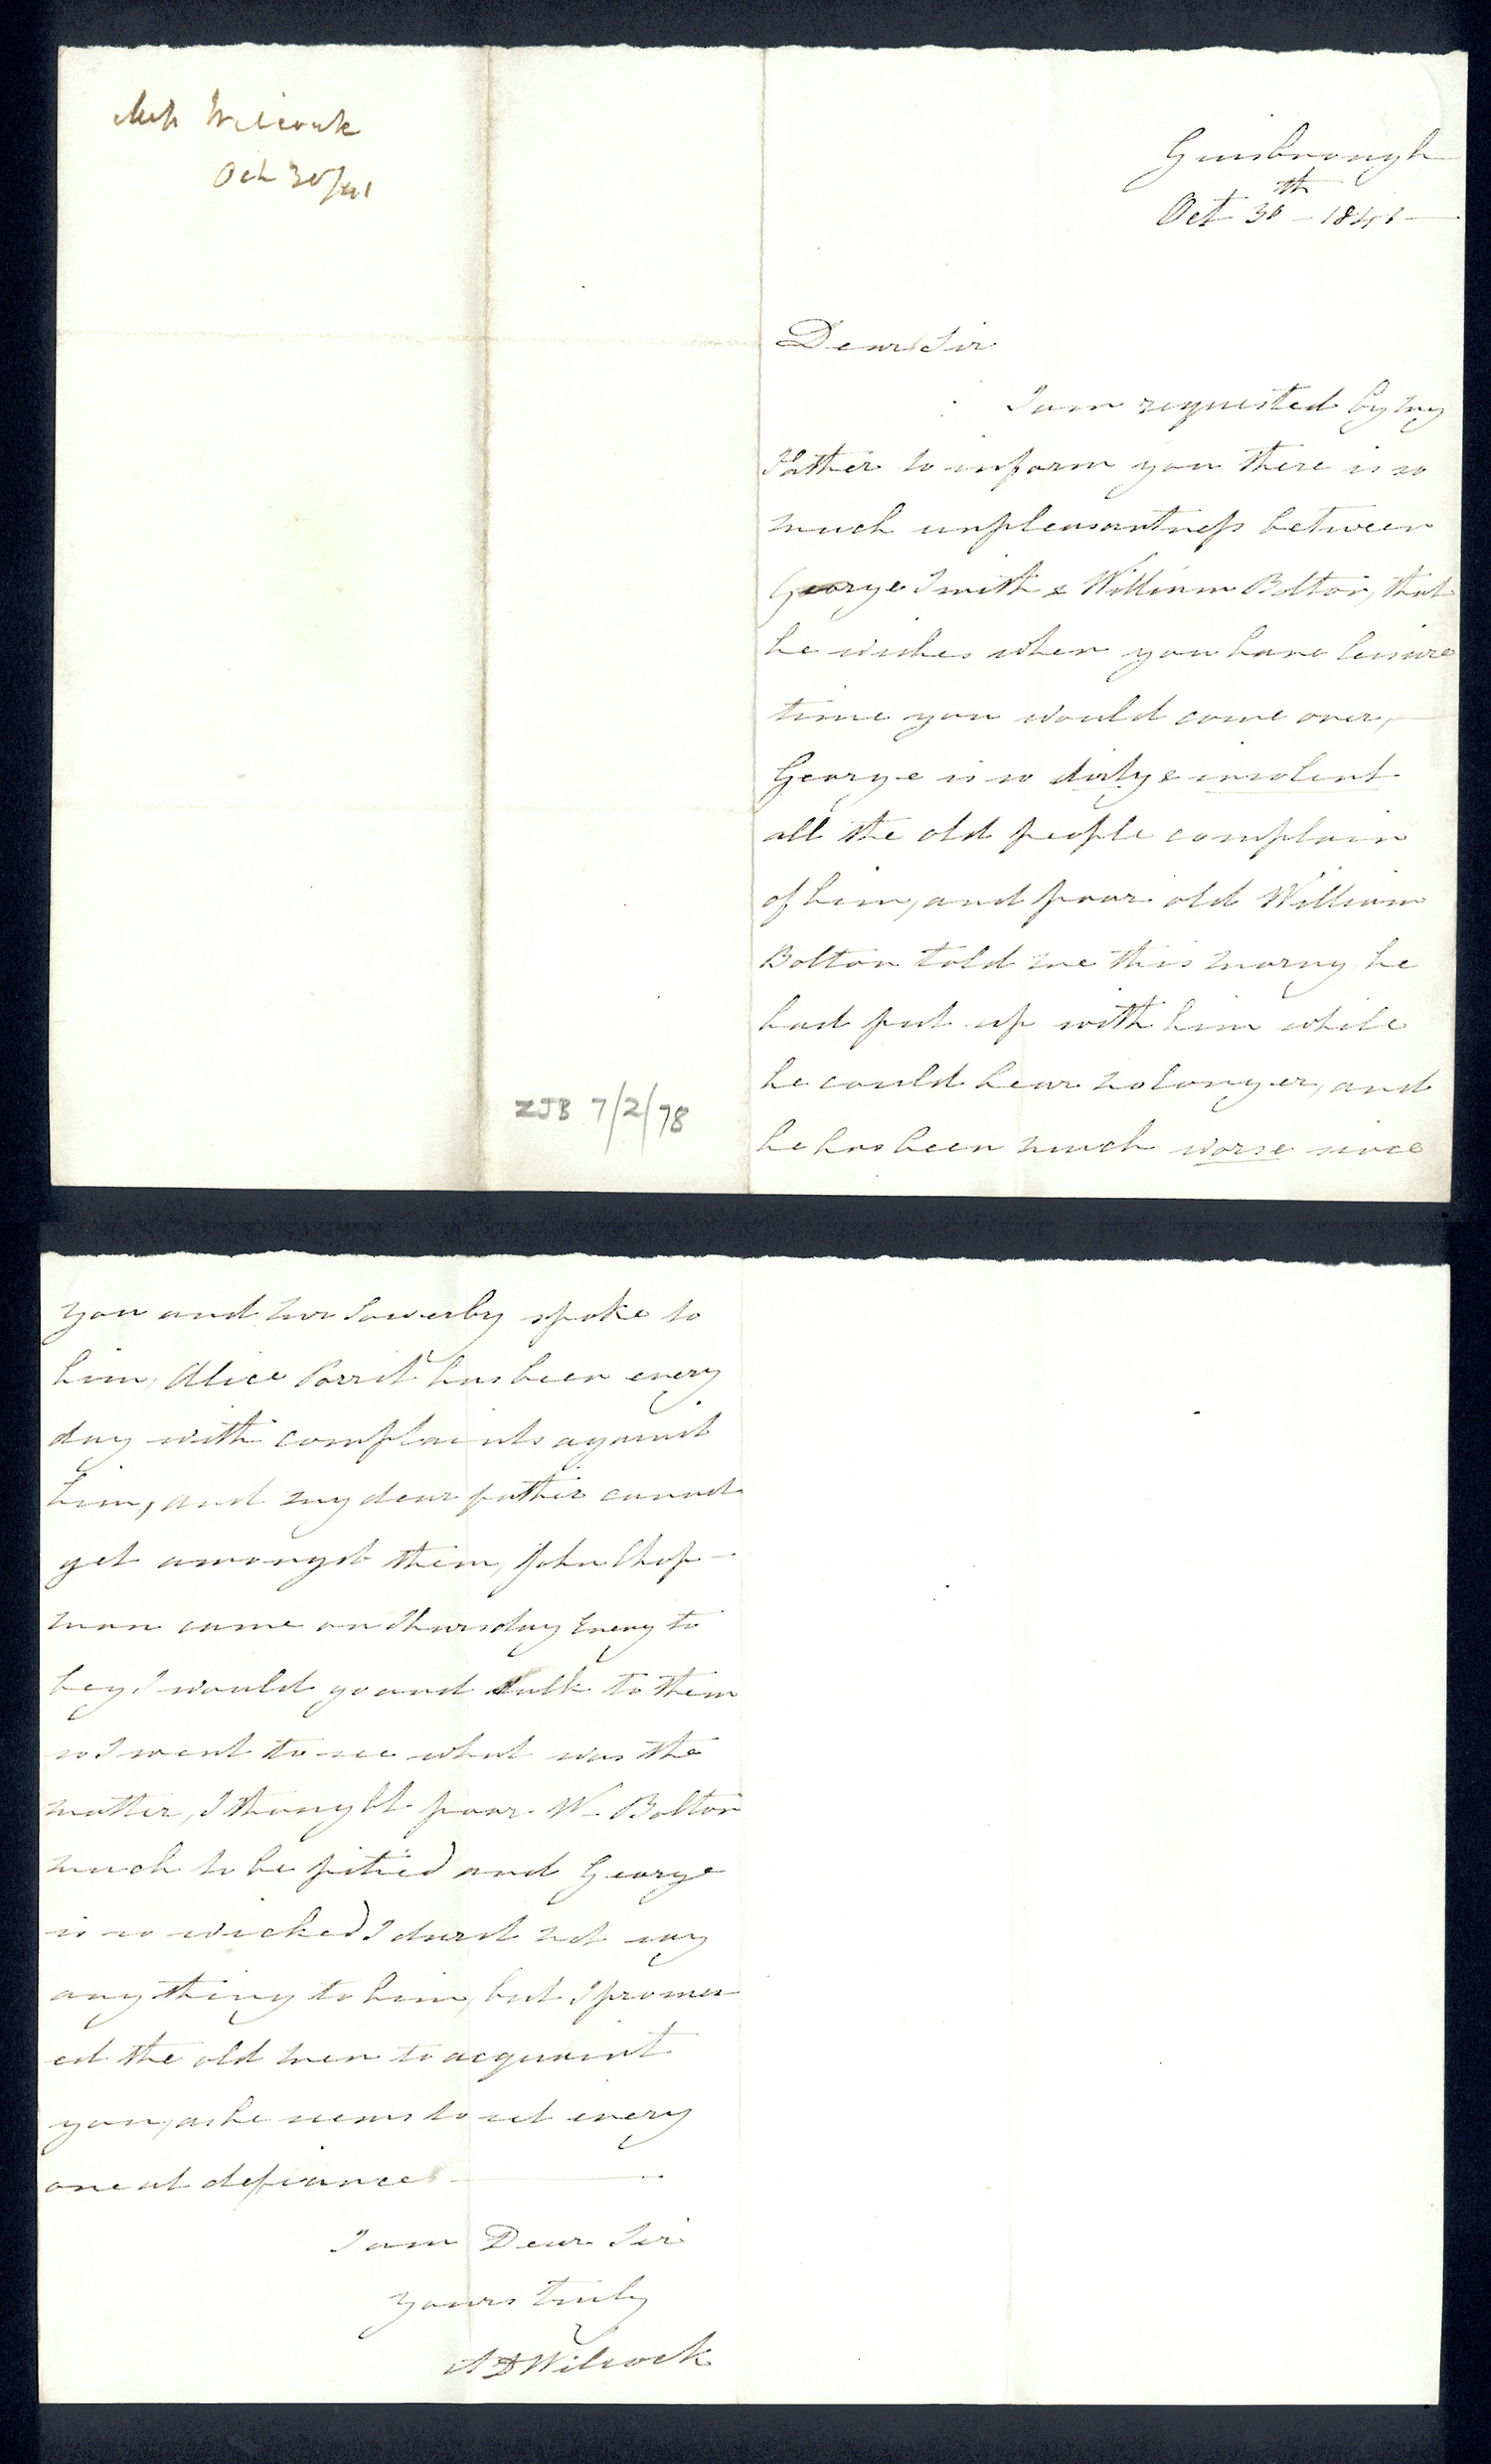 Miss Wilcock
Oct 30/41
ZJB 7/2/78
Guisbrough
Oct 30th - 1841 -
Dear Sir
I am requested by my
Father to inform you there is so
much unpleasantness between
George Smith & William Bolton, that
he wishes when you have leisure
time you would come over,
George is so dirty & insolent
all the old people complain
of him, and poor old William
Bolton told me this morng he
had put up with him while
he could bear no longer, and
he has been much worse since
you and Mr Sowerby spoke to
him, Alice Porrit has been every
day with complaints against
him, and my dear father cannot
get amongst them, John Chap-
man came on Thursday Eveng to
beg I would go and talk to them
so I went to see what was the
matter, I thought poor W. Bolton
much to be pitied and George
is so wicked I durst not say
any thing to him, but I promis
ed the old men to acquaint
you, as he seems to set every
one at defiance
I am Dear Sir
yours truly
A D Wilcock